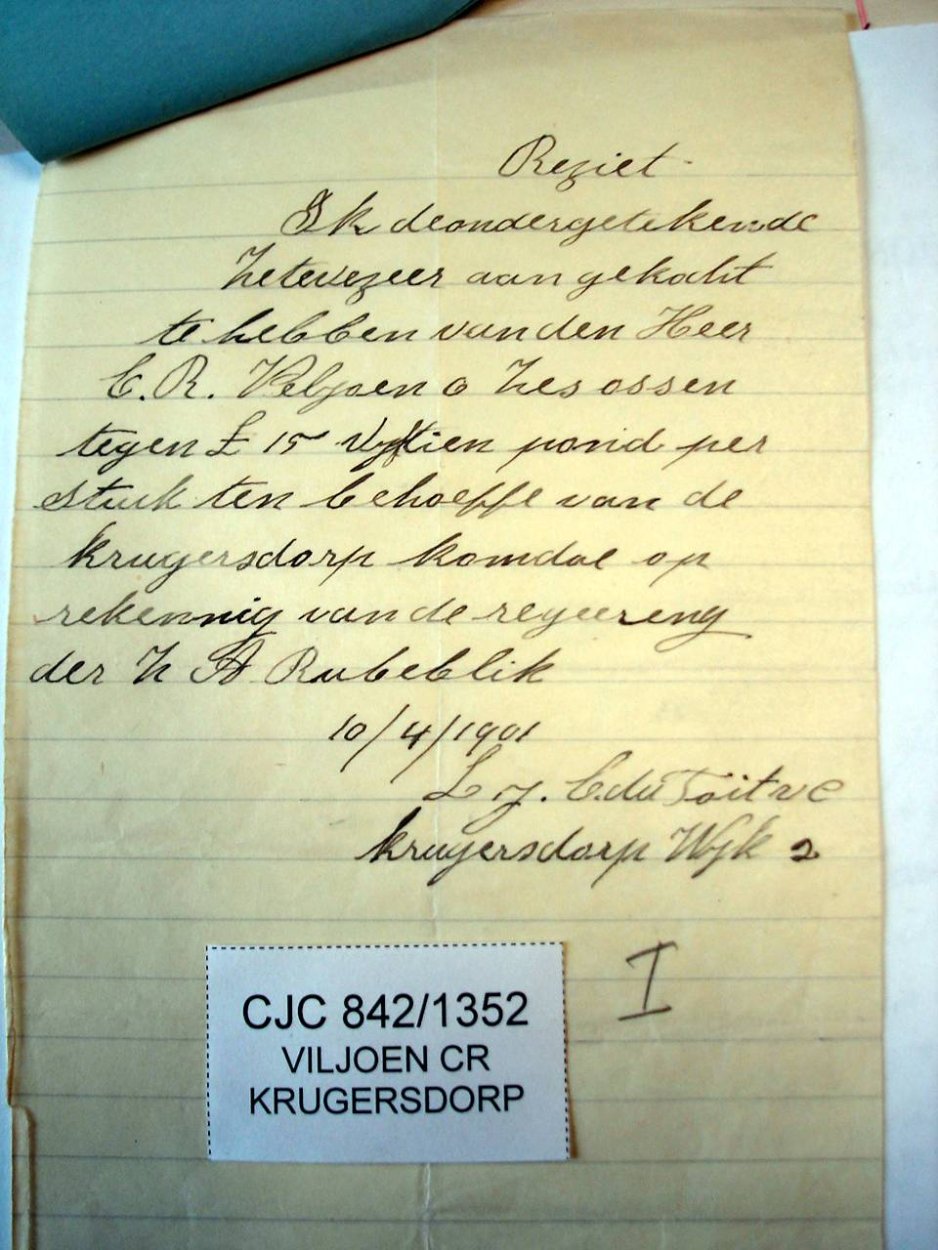 Reziet
Ik deondergetekende
Zetevezeer aan gekocht
te hebben van den Heer
C. R. Veljoen 6 Zes ossen
tegen £ 15 Vyftien pond per
Stuk ten behoeffe van de
krugersdorp komdoe op
rekennig van de regeereng
der Z A Rubeblik
10/4/1901
L J. C. du Toit vc
krugersdorp Wyk 2
I
CJC 842/1352
VILJOEN CR
KRUGERSDORP